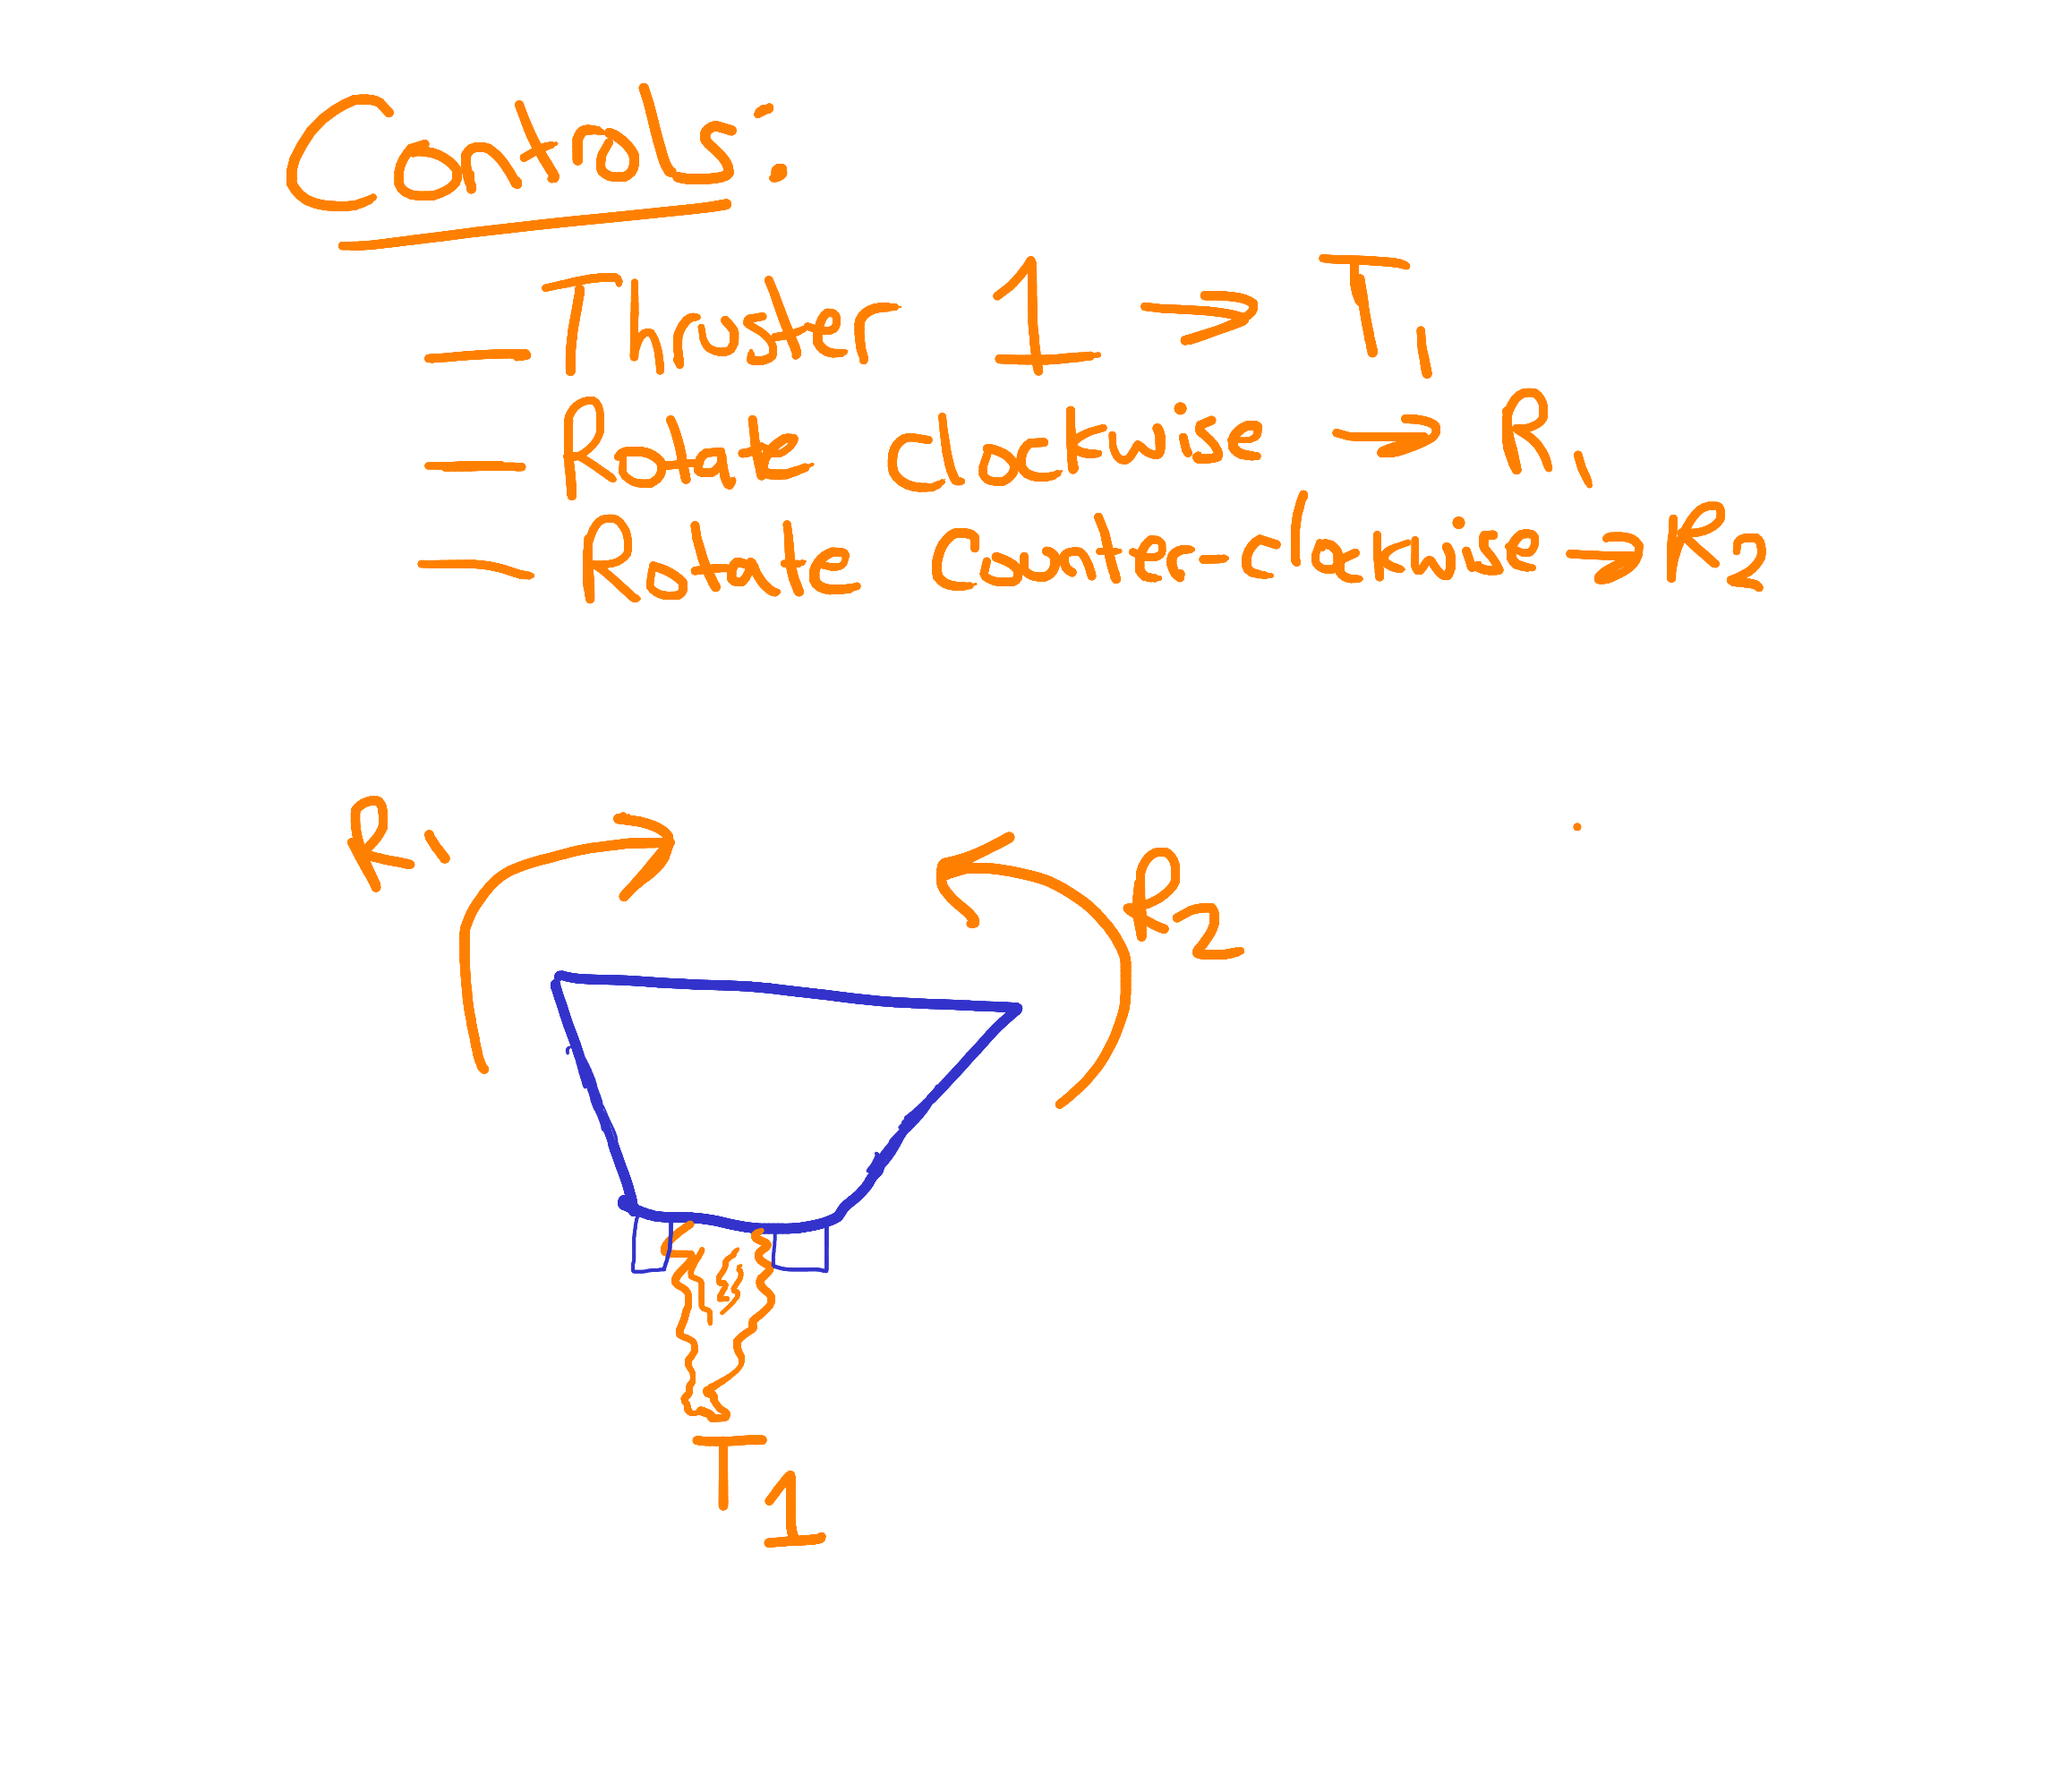 Controls:
- Thruster 1 → T1
- Rotate clockwise → R1
- Rotate counter-clockwise → R2
R1
R2
T1